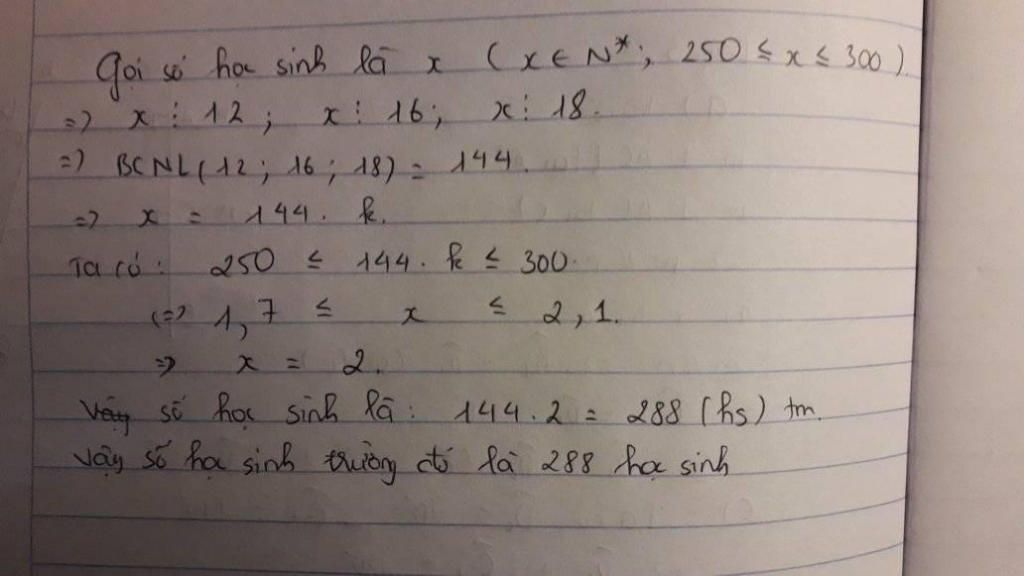 Gọi số học sinh là x ( x ∈ N*; 250 ≤ x ≤ 300).
=> x ⋮ 12 ; x ⋮ 16; x ⋮ 18.
=> BCNL(12 ; 16 ; 18) = 144.
=> x = 144. k.
Ta có: 250 ≤ 144. k ≤ 300.
(=> 1,7 ≤ x ≤ 2,1.
=> x = 2.
Vậy số học sinh là: 144.2 = 288 (hs) tm.
Vậy số học sinh trường đó là 288 học sinh